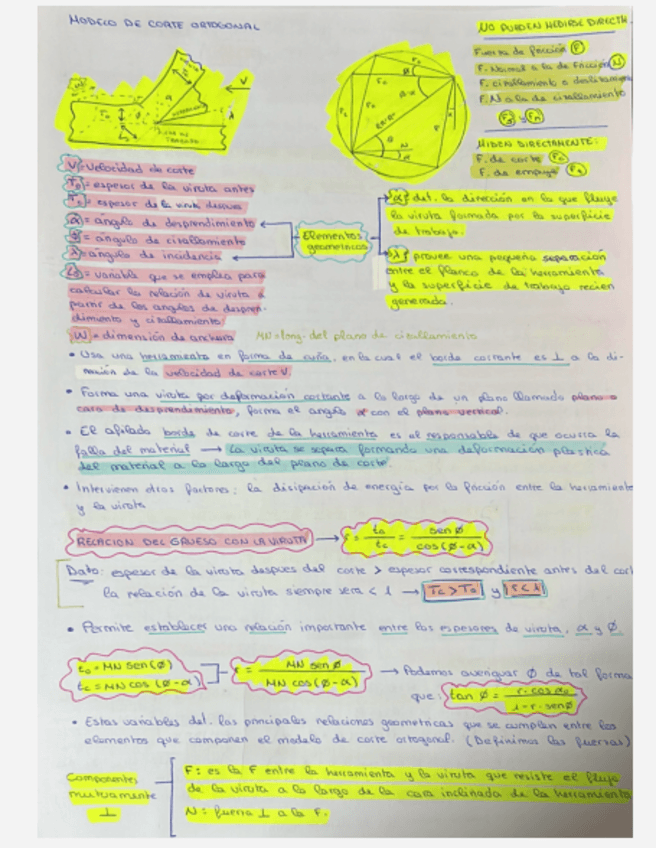 MODELO DE CORTE ORTOGONAL
NO PUEDEN MEDIRSE DIRECTA
Fuerza de fricción (F)
F. Normal a la de fricción (N)
F. cizallamiento o deslizamiento
F.N a la de cizallamiento
MIDEN DIRECTAMENTE:
F. de corte (Fc)
F. de empuje
V = velocidad de corte
To = espesor de la viruta antes
Tc = espesor de la viruta despues
α = ángulo de desprendimiento
Ø = ángulo de cizallamiento
λ = ángulo de incidencia
= variable que se emplea para
calcular la relación de viruta a
partir de los angulos de despren-
dimiento y cizallamiento
W = dimensión de anchura
MN = long. del plano de cizallamiento
Elementos
geometricos
α det. la dirección en la que fluye
la viruta formada por la superficie
de trabajo.
λ provee una pequeña separación
entre el flanco de la herramienta
y la superficie de trabajo recien
generada.
• Usa una herramienta en forma de cuña, en la cual el borde cortante es ⊥ a la di-
rección de la velocidad de corte V.
• Forma una viruta por deformación cortante a lo largo de un plano llamado plano o
cara de desprendimiento, forma el angulo α con el plano vertical.
• El afilado borde de corte de la herramienta es el responsable de que ocurra la
falla del material → La viruta se separa formando una deformación plastica
del material a lo largo del plano de corte.
• Intervienen otros factores: la disipación de energía por la fricción entre la herramienta
y la viruta
RELACION DEL GRUESO CON LA VIRUTA → r = to/tc = sen Ø / cos(Ø-α)
Dato: espesor de la viruta despues del corte > espesor correspondiente antes del cort
la relación de la viruta siempre sera < 1 → Tc > To y r < 1
• Permite establecer una relación importante entre los espesores de viruta, α y Ø.
to = MN sen(Ø)
tc = MN cos(Ø-α)
r = MN sen Ø / MN cos(Ø-α)
→ Podemos averiguar Ø de tal forma
que: tan Ø = r·cos α / 1-r·senØ
• Estas variables det. las principales relaciones geometricas que se cumplen entre los
elementos que componen el modelo de corte ortogonal. (Definimos las fuerzas)
Componentes
mutuamente
⊥
F: es la F entre la herramienta y la viruta que resiste el flujo
de la viruta a lo largo de la cara inclinada de la herramienta
N: fuerza ⊥ a la F.